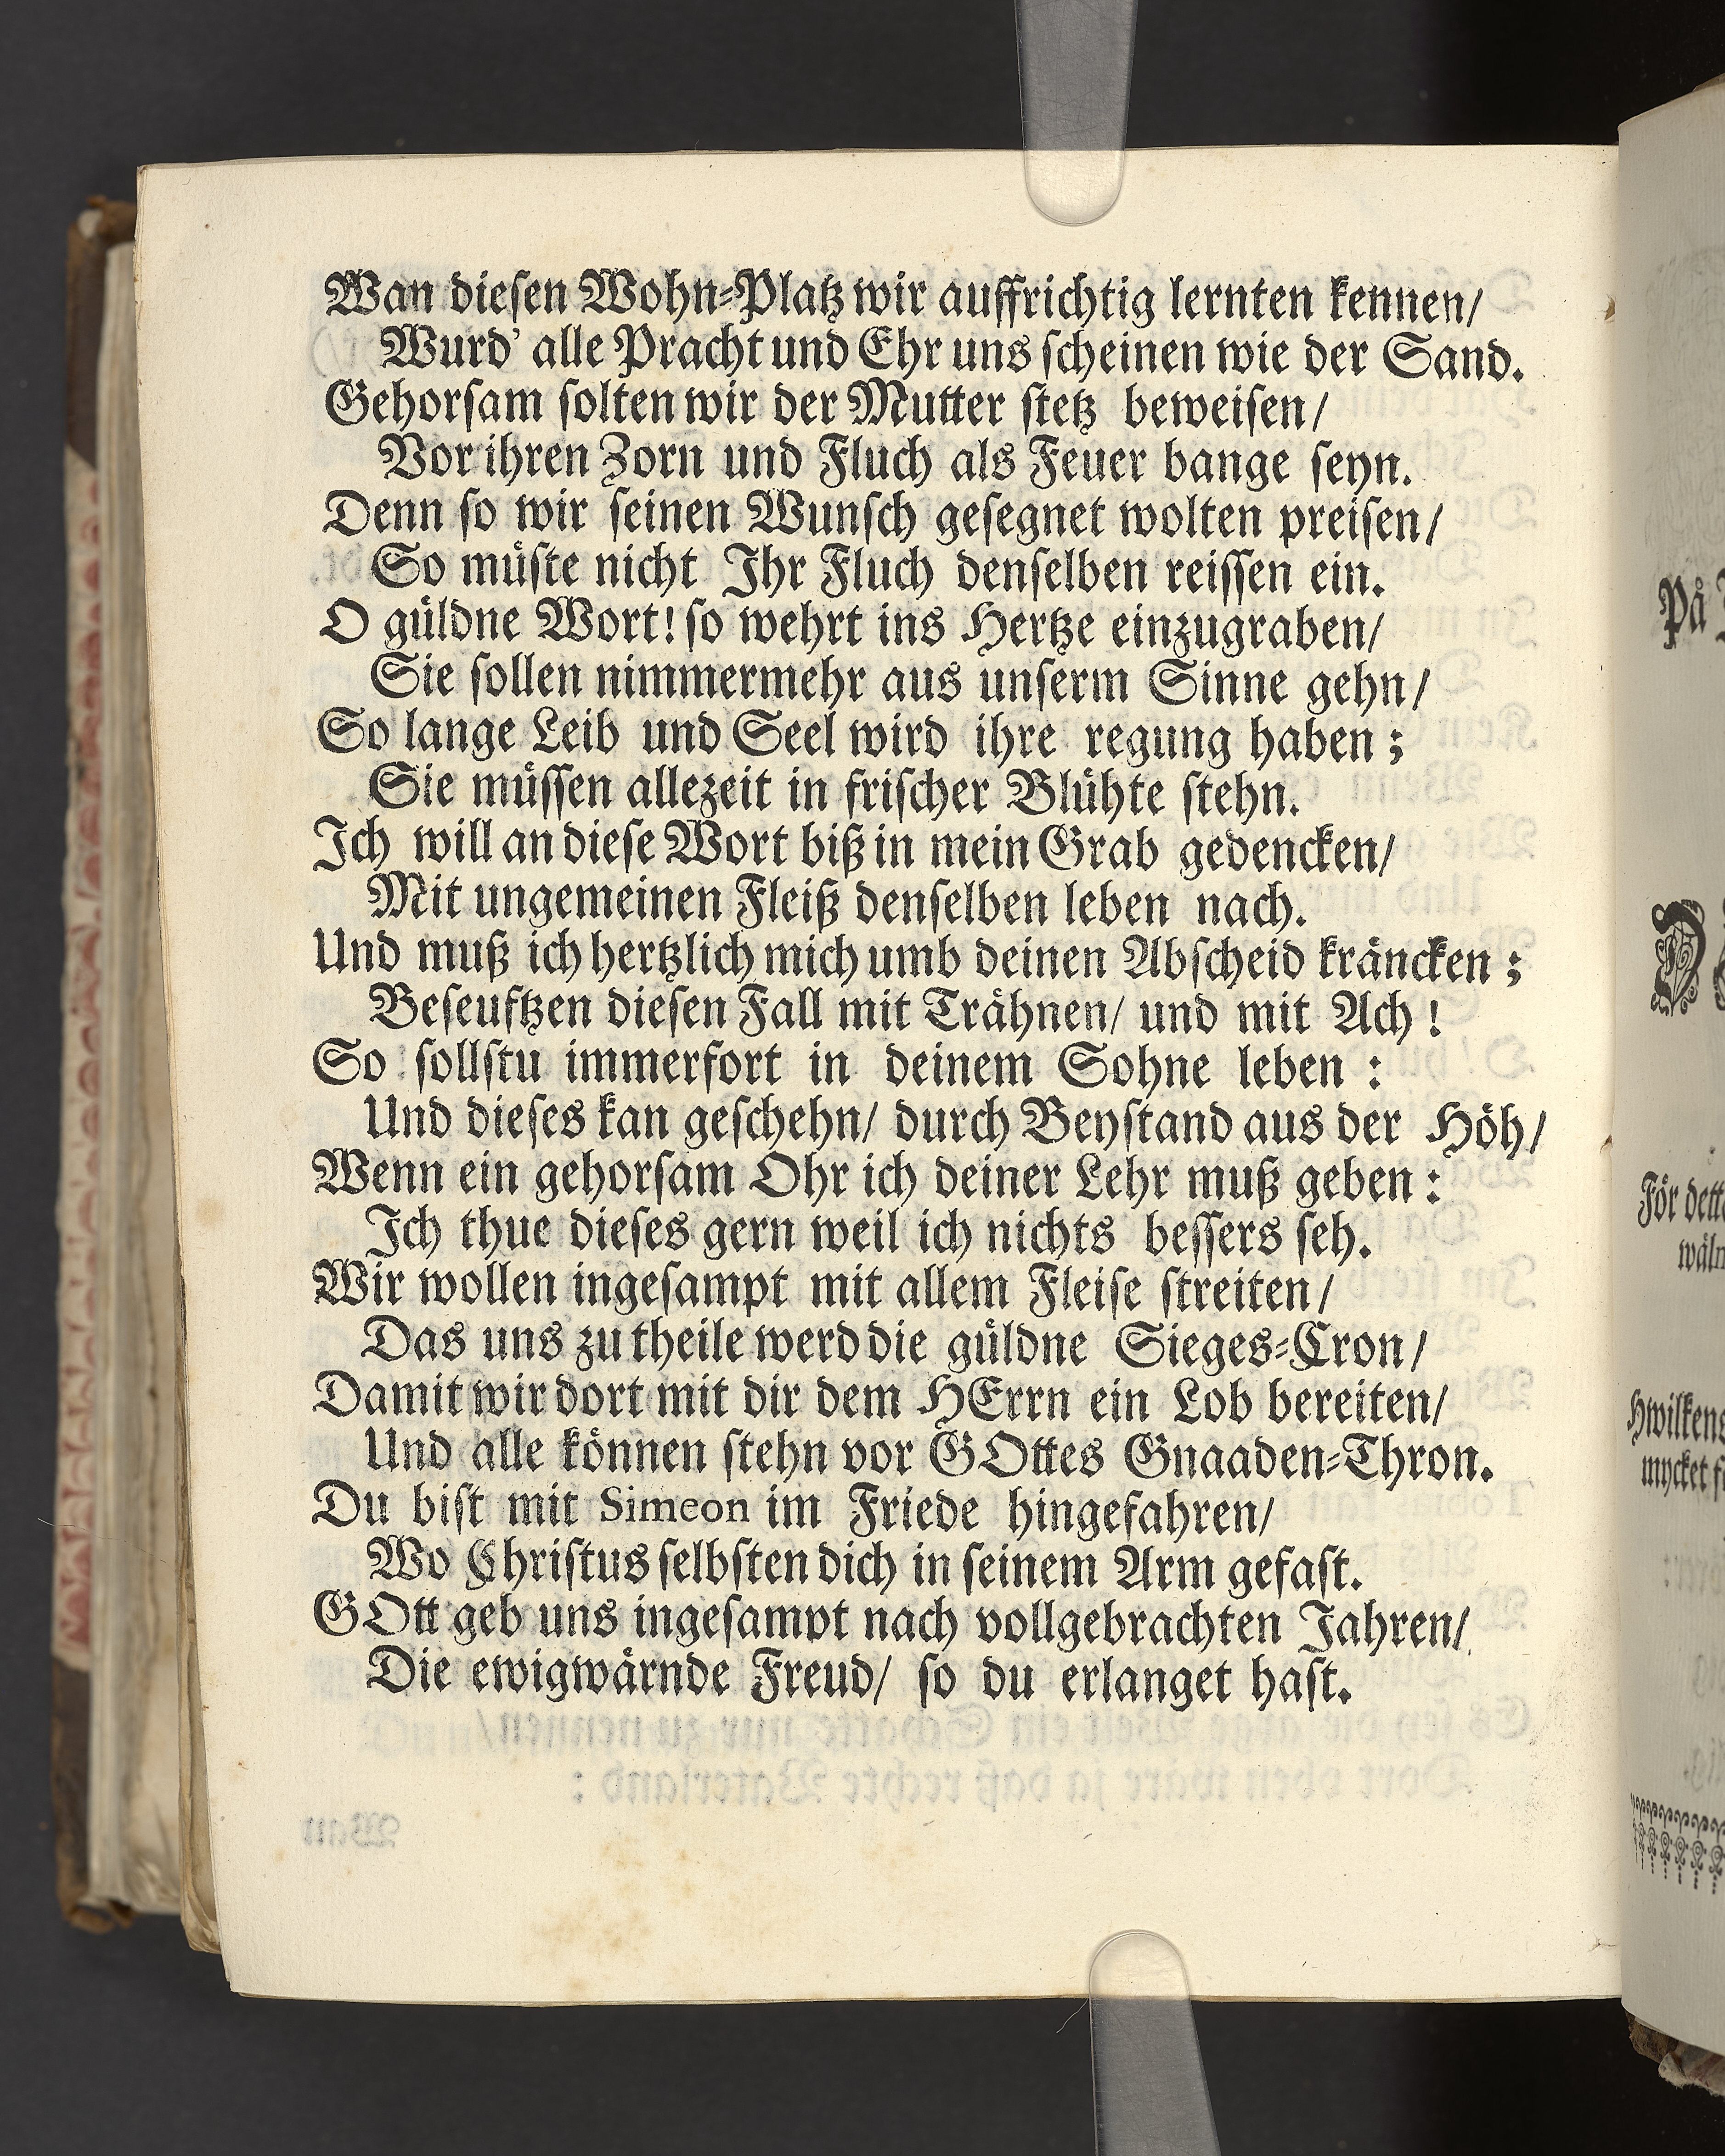 Wan dieſen Wohn⸗Platz wir auffrichtig lernten kennen/
Wurd' alle Pracht und Ehr uns ſcheinen wie der Sand.
Gehorſam ſolten wir der Mutter ſtetz beweiſen/
Vor ihren Zorn und Fluch als Feuer bange ſeyn.
Denn ſo wir ſeinen Wunſch geſegnet wolten preiſen/
So müſte nicht Ihr Fluch denſelben reiſſen ein.
O güldne Wort! ſo wehrt ins Hertze einzugraben/
Sie ſollen nimmermehr aus unſerm Sinne gehn/
So lange Leib und Seel wird ihre regung haben;
Sie müſſen allezeit in friſcher Blühte ſtehn.
Ich will an dieſe Wort biß in mein Grab gedencken/
Mit ungemeinen Fleiß denſelben leben nach.
Und muß ich hertzlich mich umb deinen Abſcheid kräncken;
Beſeuftzen dieſen Fall mit Trähnen/ und mit Ach!
So ſollſtu immerfort in deinem Sohne leben:
Und dieſes kan geſchehn/ durch Beyſtand aus der Höh/
Wenn ein gehorſam Ohr ich deiner Lehr muß geben:
Ich thue dieſes gern weil ich nichts beſſers ſeh.
Wir wollen ingeſampt mit allem Fleiſe ſtreiten/
Das uns zu theile werd die güldne Sieges⸗Cron/
Damit wir dort mit dir dem HErrn ein Lob bereiten/
Und alle können ſtehn vor GOttes Gnaaden⸗Thron.
Du biſt mit Simeon im Friede hingefahren/
Wo Chriſtus ſelbſten dich in ſeinem Arm gefaſt.
GOtt geb uns ingeſampt nach vollgebrachten Jahren/
Die ewigwärnde Freud/ ſo du erlanget haſt.
På
För
Hwilkens
mycket